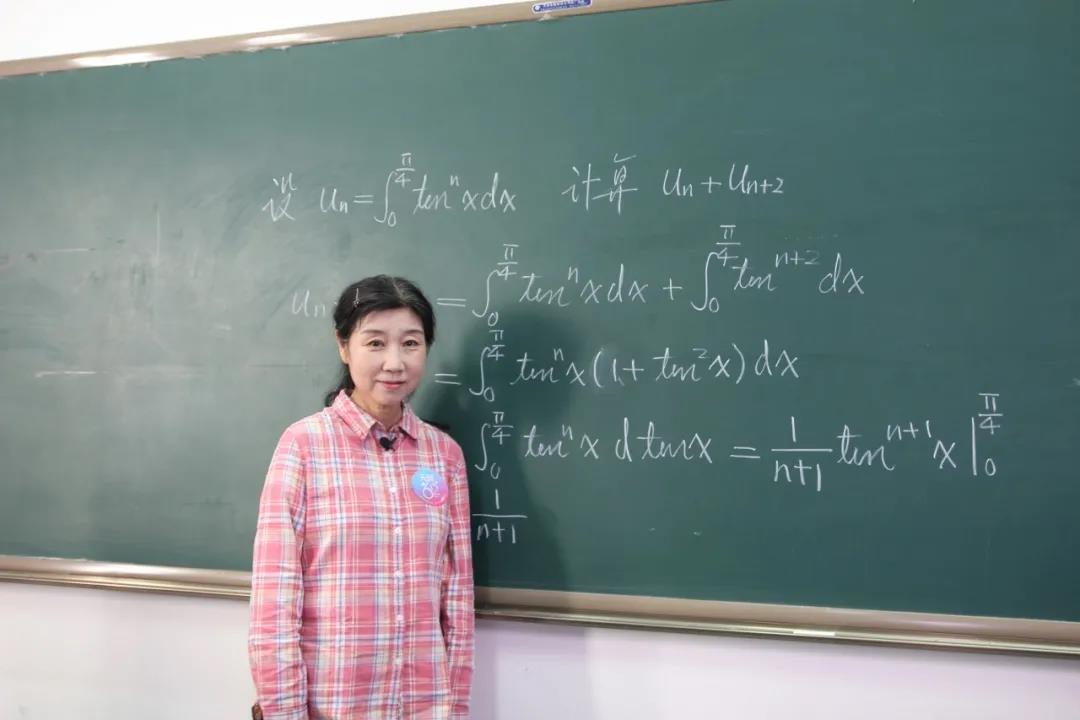 设 Uₙ = ∫₀^(π/4) tanⁿ x dx 计算 Uₙ + Uₙ₊₂
Uₙ = ∫₀^(π/4) tanⁿ x dx + ∫₀^(π/4) tanⁿ⁺² dx
= ∫₀^(π/4) tanⁿ x (1 + tan² x) dx
∫₀^(π/4) tanⁿ x d tan x = 1/(n+1) tanⁿ⁺¹ x |₀^(π/4)
1/(n+1)